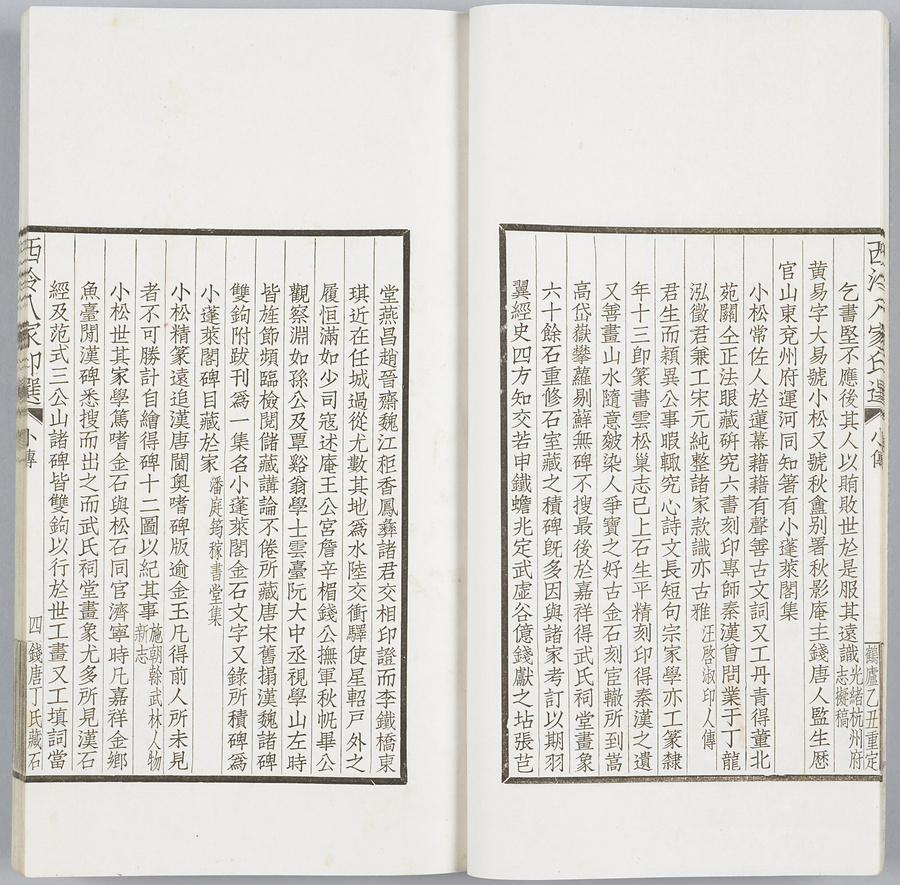 西泠八家印選 小傳
鶴廬乙丑重定
乞書堅不應後其人以賄敗世於是服其遠識光緒杭州府志擬稿
黃易字大易號小松又號秋盦別署秋影庵主錢唐人監生歷
官山東兗州府運河同知箸有小蓬萊閣集
小松常佐人於蓮幕藉藉有聲善古文詞又工丹青得董北
苑關仝正法眼藏研究六書刻印專師秦漢曾問業于丁龍
泓徵君兼工宋元純整諸家款識亦古雅汪啓淑印人傳
君生而穎異公事暇輙究心詩文長短句宗家學亦工篆隸
年十三卽篆書雲松巢志已上石生平精刻印得秦漢之遺
又善畫山水隨意皴染人爭寶之好古金石刻宦轍所到嵩
高岱嶽攀蘿剔蘚無碑不搜最後於嘉祥得武氏祠堂畫象
六十餘石重修石室藏之積碑旣多因與諸家考訂以期羽
翼經史四方知交若申鐵蟾兆定武虛谷億錢獻之坫張芑
堂燕昌趙晉齋魏江秬香鳳彝諸君交相印證而李鐵橋東
琪近在任城過從尤數其地爲水陸交衝驛使星軺戸外之
履恒滿如少司寇述庵王公宮詹辛楣錢公撫軍秋帆畢公
觀察淵如孫公及覃谿翁學士雲臺阮大中丞視學山左時
皆旌節頻臨檢閱儲藏講論不倦所藏唐宋舊搨漢魏諸碑
雙鉤附跋刊爲一集名小蓬萊閣金石文字又錄所積碑爲
小蓬萊閣碑目藏於家潘庭筠稼書堂集
小松精篆遠追漢唐閫奧嗜碑版逾金玉凡得前人所未見
者不可勝計自繪得碑十二圖以紀其事施朝幹武林人物新志
小松世其家學篤嗜金石與松石同官濟寧時凡嘉祥金鄉
魚臺閒漢碑悉搜而出之而武氏祠堂畫象尤多所見漢石
經及范式三公山諸碑皆雙鉤以行於世工畫又工填詞當
西泠八家印選 小傳 四 錢唐丁氏藏石